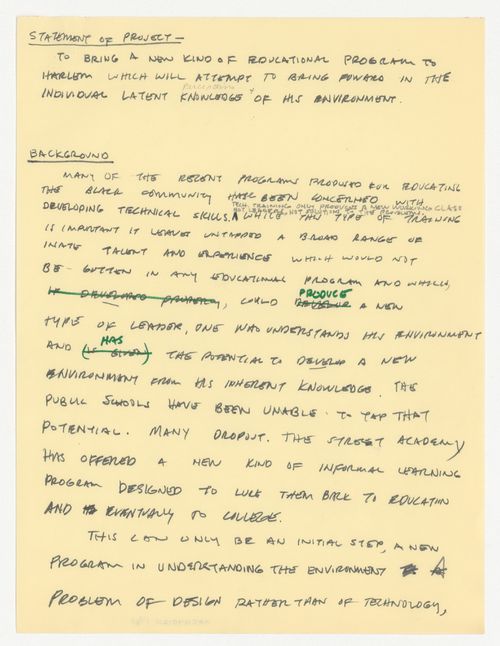 STATEMENT OF PROJECT —
TO BRING A NEW KIND OF EDUCATIONAL PROGRAM TO
HARLEM WHICH WILL ATTEMPT TO BRING FOWARD IN THE
INDIVIDUAL LATENT KNOWLEDGE OF HIS ENVIRONMENT.
BACKGROUND
MANY OF THE RECENT PROGRAMS PRODUCED FOR EDUCATING
THE BLACK COMMUNITY HAVE BEEN CONCERNED WITH
TECH. TRAINING ONLY PRODUCES A NEW WORKING CLASS
NOT LEADERS, NOT SOLUTION TO THE PROBLEM.
DEVELOPING TECHNICAL SKILLS. WHILE THIS TYPE OF TRAINING
IS IMPORTANT IT LEAVES UNTAPPED A BROAD RANGE OF
INNATE TALENT AND EXPERIENCE WHICH WOULD NOT
BE GOTTEN IN ANY EDUCATIONAL PROGRAM AND WHICH,
PRODUCE
IF DEVELOPED PROPERLY, COULD DEVELOP A NEW
TYPE OF LEADER, ONE WHO UNDERSTANDS HIS ENVIRONMENT
HAS
AND (IS GIVEN) THE POTENTIAL TO DEVELOP A NEW
ENVIRONMENT FROM HIS INHERENT KNOWLEDGE. THE
PUBLIC SCHOOLS HAVE BEEN UNABLE TO TAP THAT
POTENTIAL. MANY DROPOUT. THE STREET ACADEMY
HAS OFFERED A NEW KIND OF INFORMAL LEARNING
PROGRAM DESIGNED TO LURE THEM BACK TO EDUCATION
AND EVENTUALLY TO COLLEGE.
THIS CAN ONLY BE AN INITIAL STEP, A NEW
PROGRAM IN UNDERSTANDING THE ENVIRONMENT A
PROBLEM OF DESIGN RATHER THAN OF TECHNOLOGY,